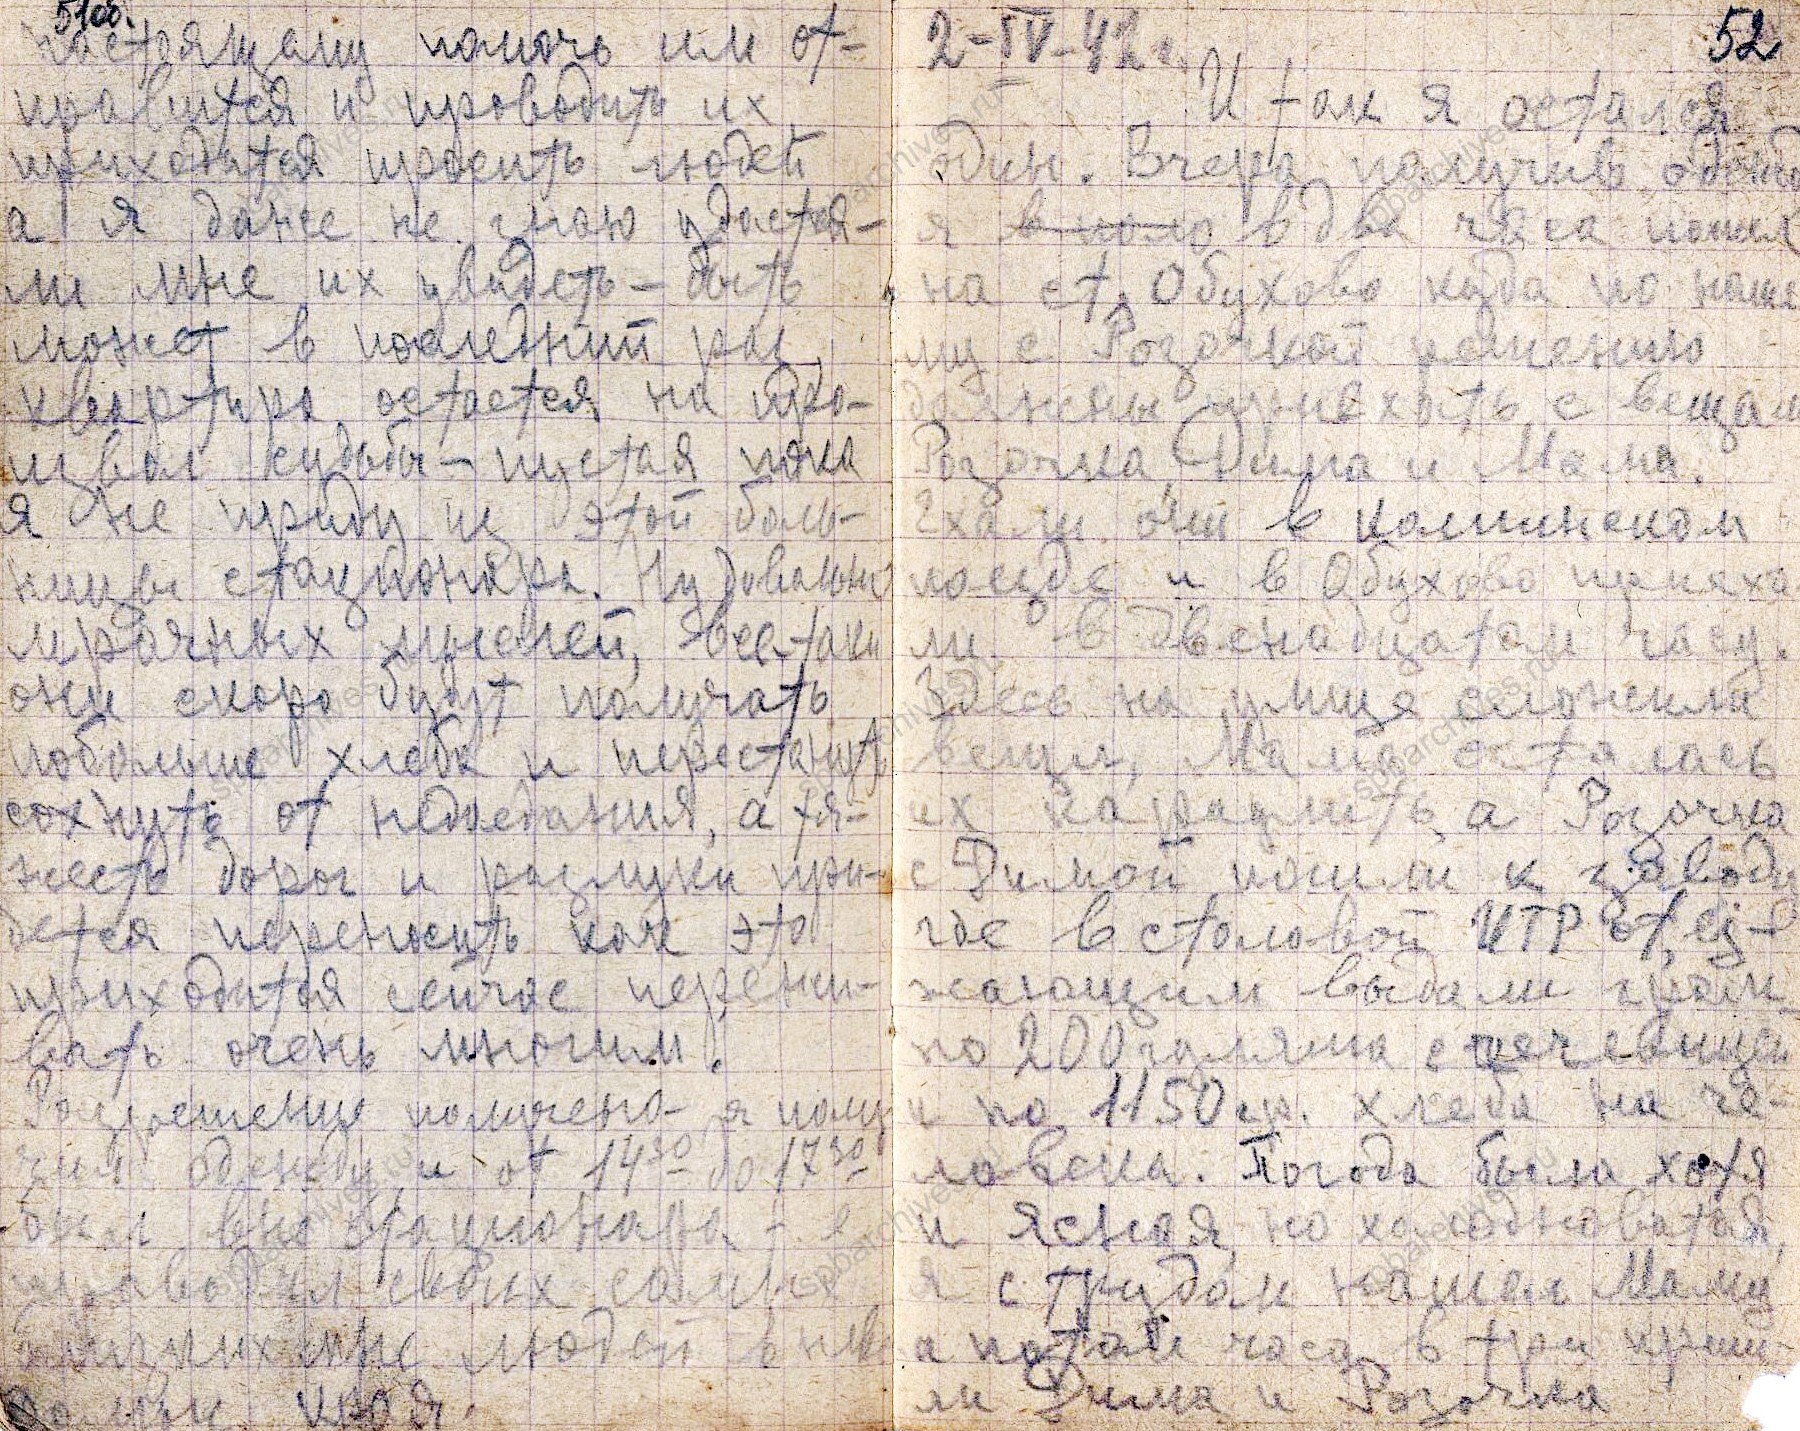 51об.
настоящему помочь им от-
правится и проводить их
приходится просить людей
а я даже не знаю удастся-
ли мне их увидеть – быть
может в последний раз,
квартира остается на про-
извол судьбы – пустая пока
я не приду из этой боль-
ницы стационара. Ну довольно
мрачных мыслей, всетаки
они скоро будут получать
побольше хлеба и перестанут
сохнуть от недоедания, а тя-
жесть дорог и разлуки при-
дется переносить как это
приходится сейчас пережи-
вать очень многим.
Разрешение получено – я полу
чил одежду и от 14³⁰ до 17³⁰
был вне стационара –
своих самых
близких мне людей в
края.
52
2-IV-42 г.
И так я остался
один. Вчера получив одежду
я в два часа пошел
на ст. Обухово куда по наше
му с Розочкой решению
должны приехать с вещами
Розочка, Дима и Мама.
Ехали они в колпинском
поезде и в Обухово приеха
ли в двенадцатом часу.
Здесь на улице сложили
вещи, Мама осталась
их караулить, а Розочка
с Димой пошли к заводу
где в столовой ИТР отъез-
жающим выдали
по 200 грамма с чечевицей
и по 1150 гр. хлеба на че-
ловека. Погода была хотя
и ясная, но холодноватая,
я с трудом нашел Маму
а потом часа в три приш-
ли Дима и Розочка